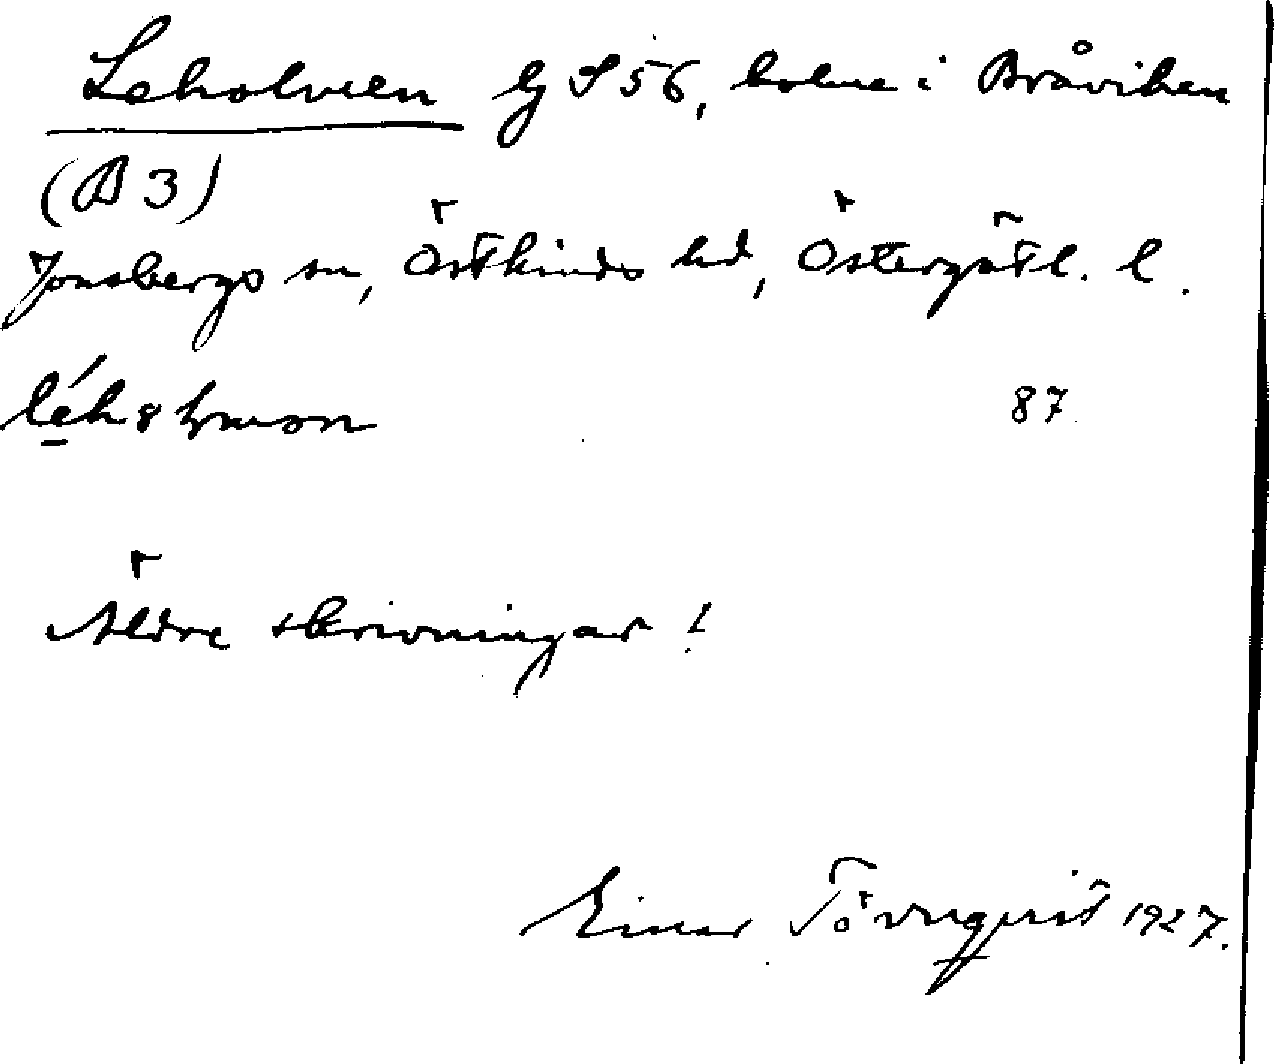 Lekolmen Lj S 56, holme i Bråviken
(B 3)
Jonsbergs sn, Östkinds hd, Östergötl. l.
87
Äldre skrivningar!
Einar Törnquist 1927.